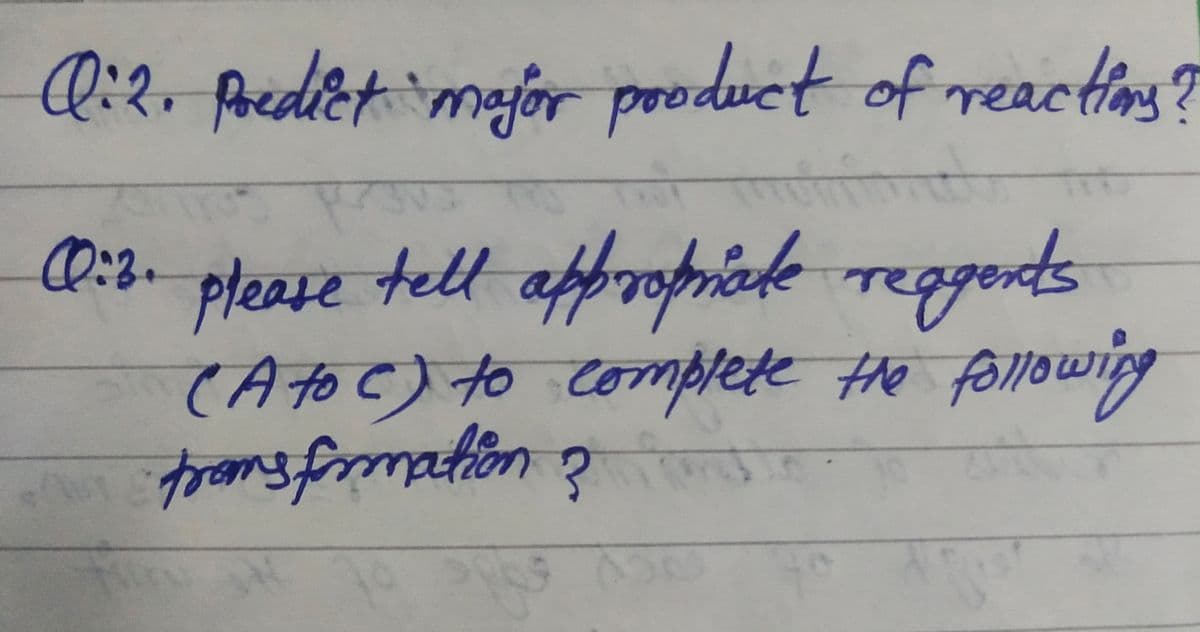 Q:2. Predict major product of reactions?
Q:3. please tell appropriate reagents
(A to C) to complete the following
transformation ?